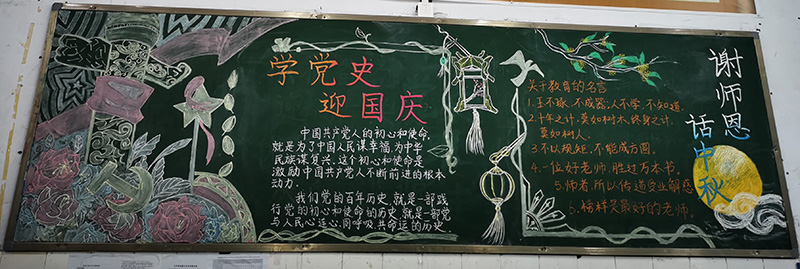 学党史
迎国庆
中国共产党人的初心和使命,
就是为了中国人民谋幸福,为中华
民族谋复兴。这个初心和使命是
激励中国共产党人不断前进的根本
动力.
我们党的百年历史,就是一部践
行党的初心和使命的历史,就是一部党
与人民心连心,同呼吸,共命运的历史.
关于教育的名言
1.玉不琢,不成器;人不学,不知道.
2.十年之计,莫如树木,终身之计,
莫如树人.
3.不以规矩,不能成方圆.
4.一位好老师,胜过万本书.
5.师者,所以传道受业解惑
6.榜样是最好的老师.
谢师恩
话中秋